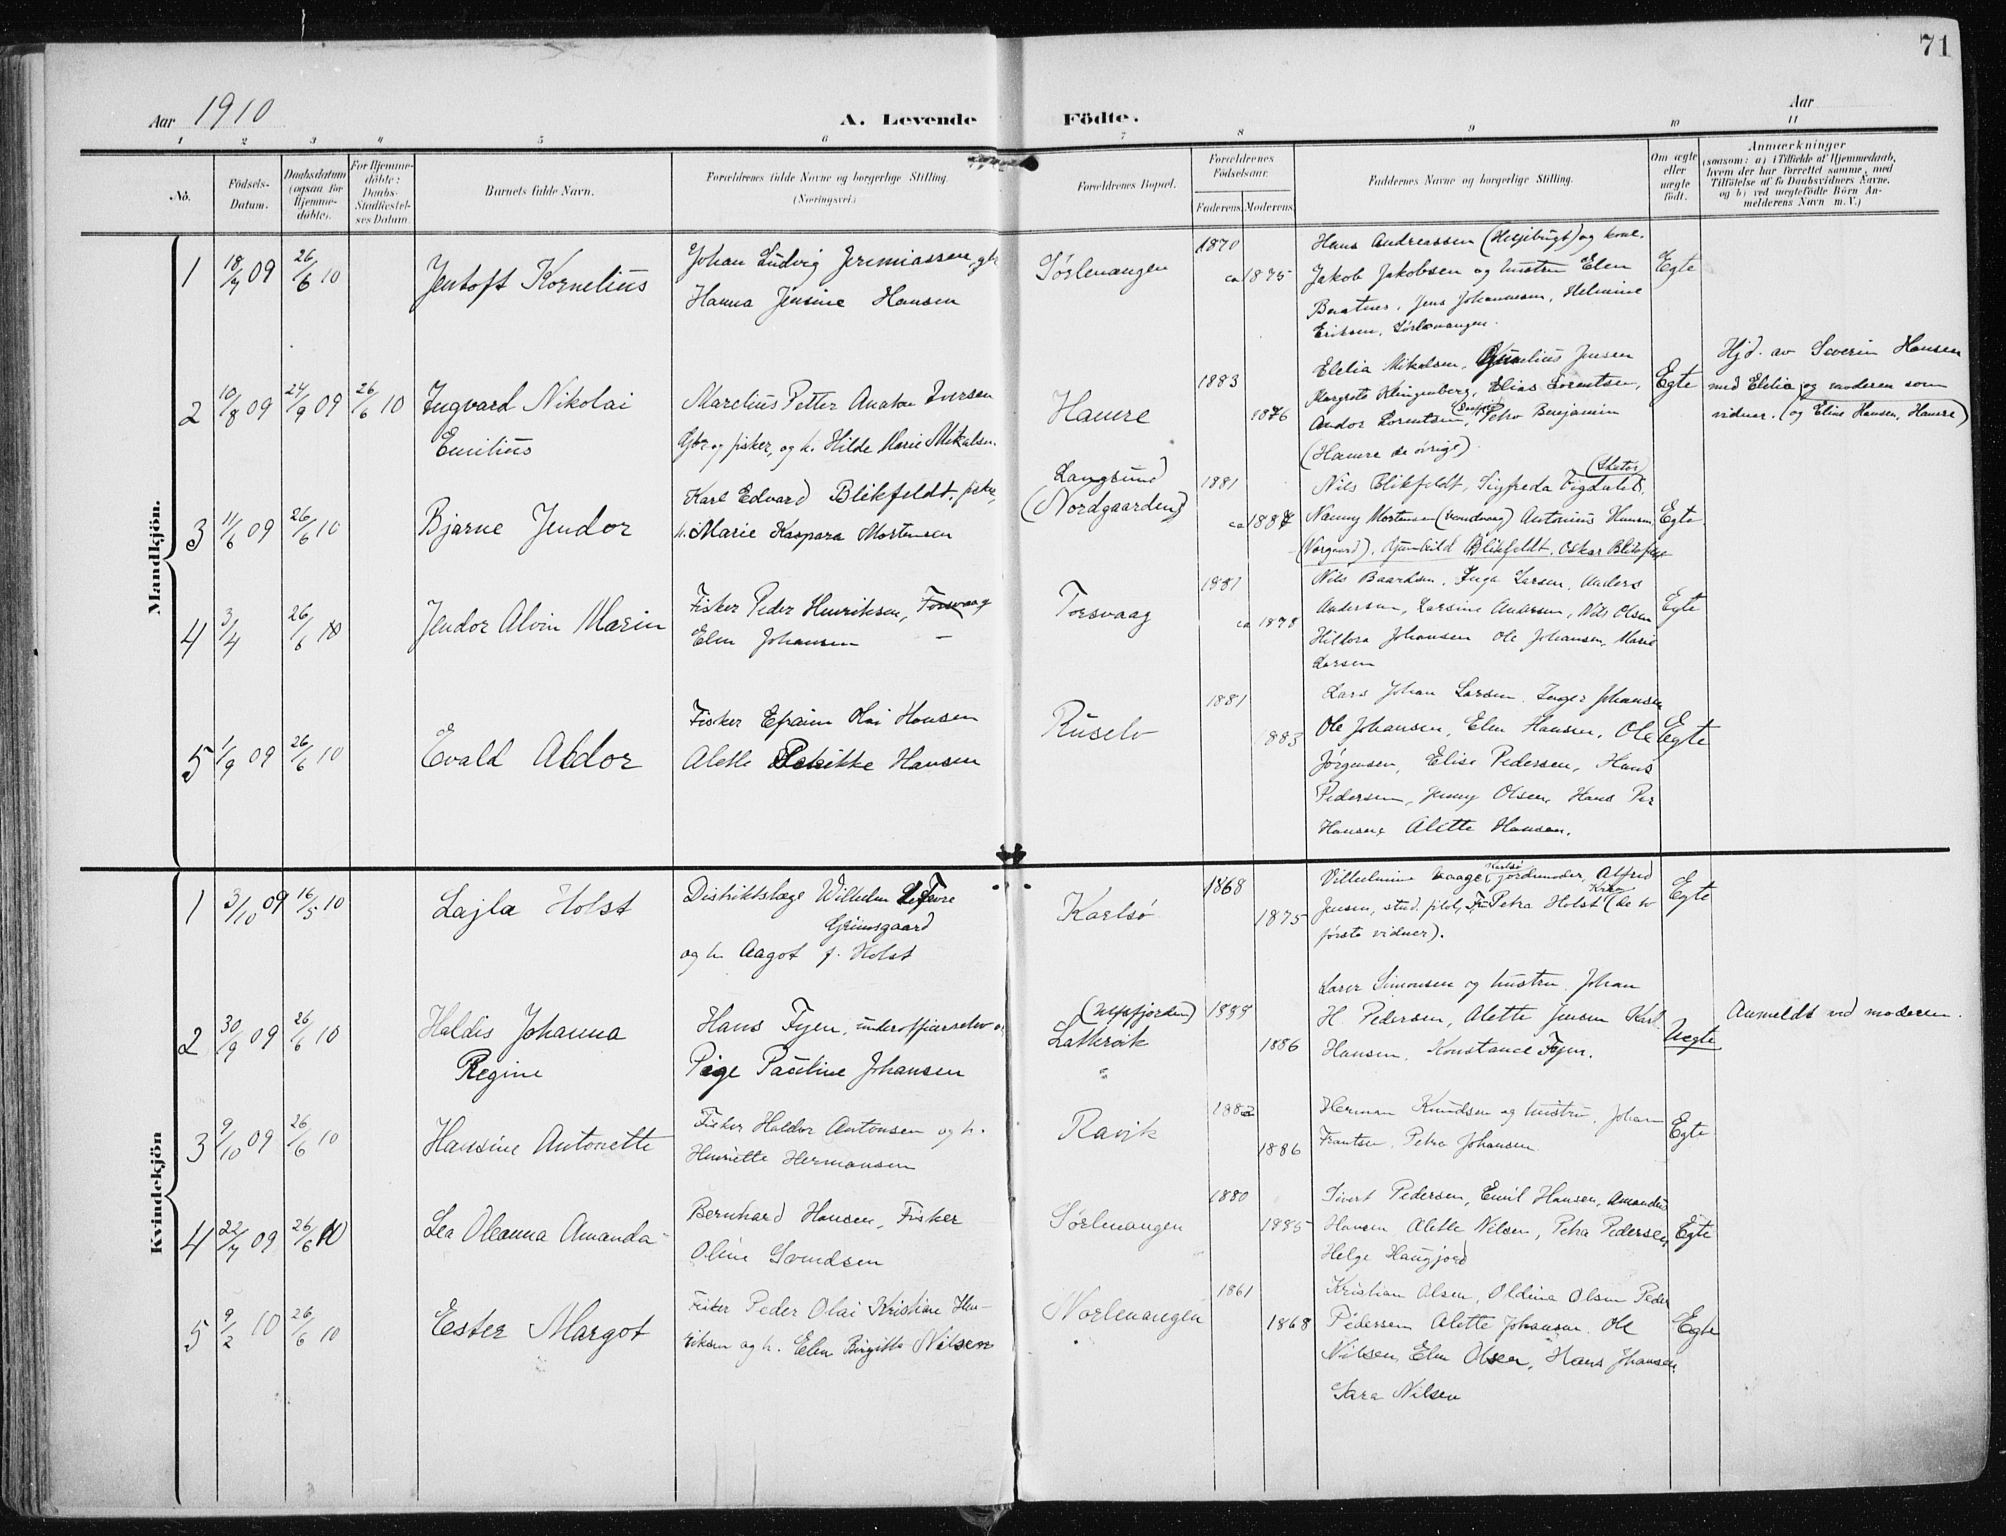 71
Aar 1910
A. Levende Födte.
Aar
1 2 3 4 5 6 7 8 9 10 11
No.
Födsels-
Datum.
Daabsdatum
(ogsaa for
Hjemme-
döbte).
For Hjemme-
döbte:
Daabs-
Stadfæstel-
ses Datum.
Barnets fulde Navn.
Forældrenes fulde Navne og borgerlige Stilling.
(Næringsvei.)
Forældrenes Bopæl.
Forældrenes
Födselsaar.
Faderens. Moderens.
Faddernes Navne og borgerlige Stilling.
Om ægte
eller
uægte
födt.
Anmærkninger
(saasom: a) i Tilfælde af Hjemmedaab,
hvem der har forrettet samme, med
Tilföielse af to Daabsvidners Navne,
og b) ved uægtefödte Börn An-
melderens Navn m. V.)
Mandkjön.
1 18/7 09 26/6 10 Jentoft Kornelius
Johan Ludvig Jeremiassen, gbr
Hanna Jensine Hansen
Sørlenangen
1870
ca 1875
Hans Andreassen og kone.
Jakob Jakobsen og hustru Elen
Jens Johannesen, Helmine
Eriksen, Sørlenangen.
Egte
2 10/8 09 24/9 09 26/6 10 Ingvard Nikolai
Emilius
Marelius Petter Anaton Iversen
Gbr og fisker, og h. Hilde Marie Mikalsen.
Hamre
1883
1876
Eletia Mikalsen, Jensen
Margrete Klingenberg, Elias Lorentsen,
Andor Lorentsen, Petro Benjamin
(Hamre de øvrige)
Egte
Hjd. av Severin Hansen
med Eletia og moderen som
vidner. (og Eline Hansen, Hamre)
3 11/6 09 26/6 10 Bjarne Jendor
Karl Edvard Blikfeldt, fisker,
h. Marie Kaspara Mortensen
Langsund
(Nordgaarden)
1881
ca 1887
Nils Blikfeldt, Sigfreda
Nanny Mortensen Antonius Hansen
Gunhild Blikfeldt, Oskar Blikfeldt
Egte
4 3/4 26/6 10 Jendor Alvin Marin
Fisker Peder Henriksen, Torsvaag
Elen Johansen
Torsvaag
1881
ca 1878
Nils Baardsen, Inga Larsen, Anders
Andersen, Larsine Andersen, Nils Olsen
Hildora Johansen Ole Johansen, Marie
Larsen
Egte
5 1/9 09 26/6 10 Evald Aldor
Fisker Efraim Hai Hansen
Alette Hansen
Ruselv
1881
1883
Lars Johan Larsen, Inger Johansen
Ole Johansen, Elen Hansen, Ole
Jørgensen, Elise Pedersen, Hans
Pedersen, Jenny Olsen, Hans Per
Hansen, Alette Hansen.
Egte
Kvindekjön
1 3/10 09 16/5 10 Lajla Holst
Distriktslæge Wilhelm Lefevre
Grimsgaard
og h. Aagot f. Holst
Karlsø
1868
1875
Karlsø
Vilhelmine Vaage, jordemoder, Alfred
Jensen, stud. filol., Fr. Petra Holst (de to
første vidner).
Egte
2 30/9 09 26/6 10 Haldis Johanna
Regine
Hans Fyen, underofficerselev og
Pige Pauline Johansen
(Ullsfjorden)
Lattervik
"
1889
1886
Simonsen og hustru, Johan
H Pedersen, Alette Jensen Karl
Hansen, Konstance Fyen.
Uegte
Anmeldt ved moderen.
3 9/10 09 26/6 10 Hansine Antonette
Fisker Haldor Antonsen og h.
Henriette Hermansen
Ravik
1882
1886
Herman Knudsen og hustru, Johan
Frantsen, Petra Johansen.
Egte
4 22/7 09 26/6 10 Lea Oleanna Amanda
Bernhard Hansen, Fisker
Oline Svendsen
Sørlenangen
1880
1885
Sivert Pedersen, Emil Hansen, Amandus
Hansen Alette Nilsen, Petra Pedersen,
Helge Haugjord
Egte
5 9/2 10 26/6 10 Ester Margot
Fisker Peder Olai Kristian Hen-
riksen og h. Elen Birgitte Nilsen
Norlenangen
"
1861
1868
Kristian Olsen, Oldina Olsen Peder
Pedersen Alette Johansen, Ole
Nilsen, Elen Olsen, Hans Johansen,
Sara Nilsen
Egte